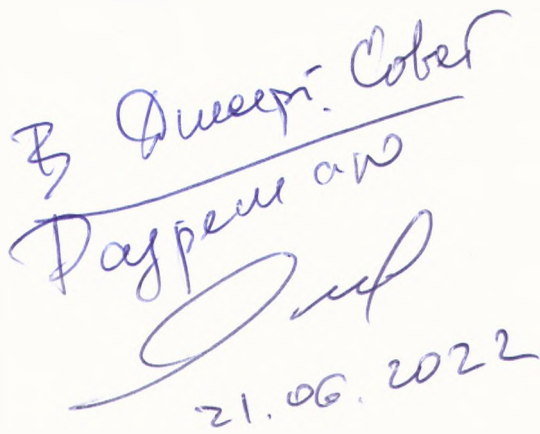 В Диссерт. Совет
Разрешаю
21.06.2022